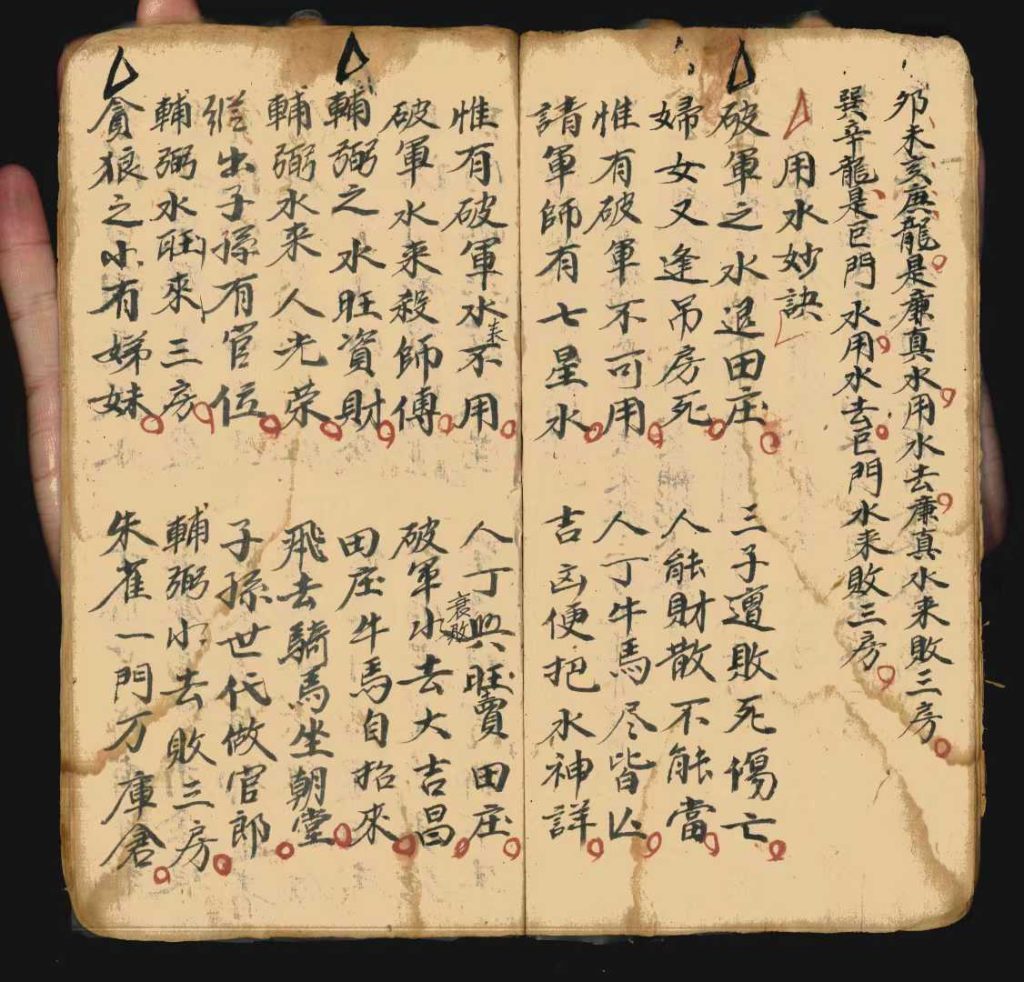 卯未亥庚龍是廉真水用水去廉真水来敗三房
巽辛龍是巨門水用水去巨門水来敗三房
用水妙訣
破軍之水退田庄 三子遭敗死傷亡
婦女又逢吊房死 人能財散不能當
惟有破軍不可用 人丁牛馬尽皆亾
請軍師有七星水 吉凶便把水神詳
惟有破軍水来不用 人丁興旺買田庄
衰敗
破軍水来殺師傅 破軍水去大吉昌
輔弼之水旺資財 田庄牛馬自招來
輔弼水来人光荣 飛去騎馬坐朝堂
出子孫有官位 子孫世代做官郎
輔弼水旺來三房 輔弼水去敗三房
貪狼之水有娣妹 朱雀一門万庫倉